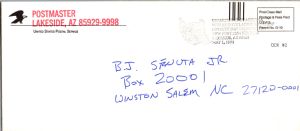 POSTMASTER
LAKESIDE, AZ 85929-9998
United States Postal Service
First-Class Mail
Postage & Fees Paid
USPS
Permit No. G-10
B.J. SENUTA JR
BOX 20001
WINSTON SALEM NC 27120-0001